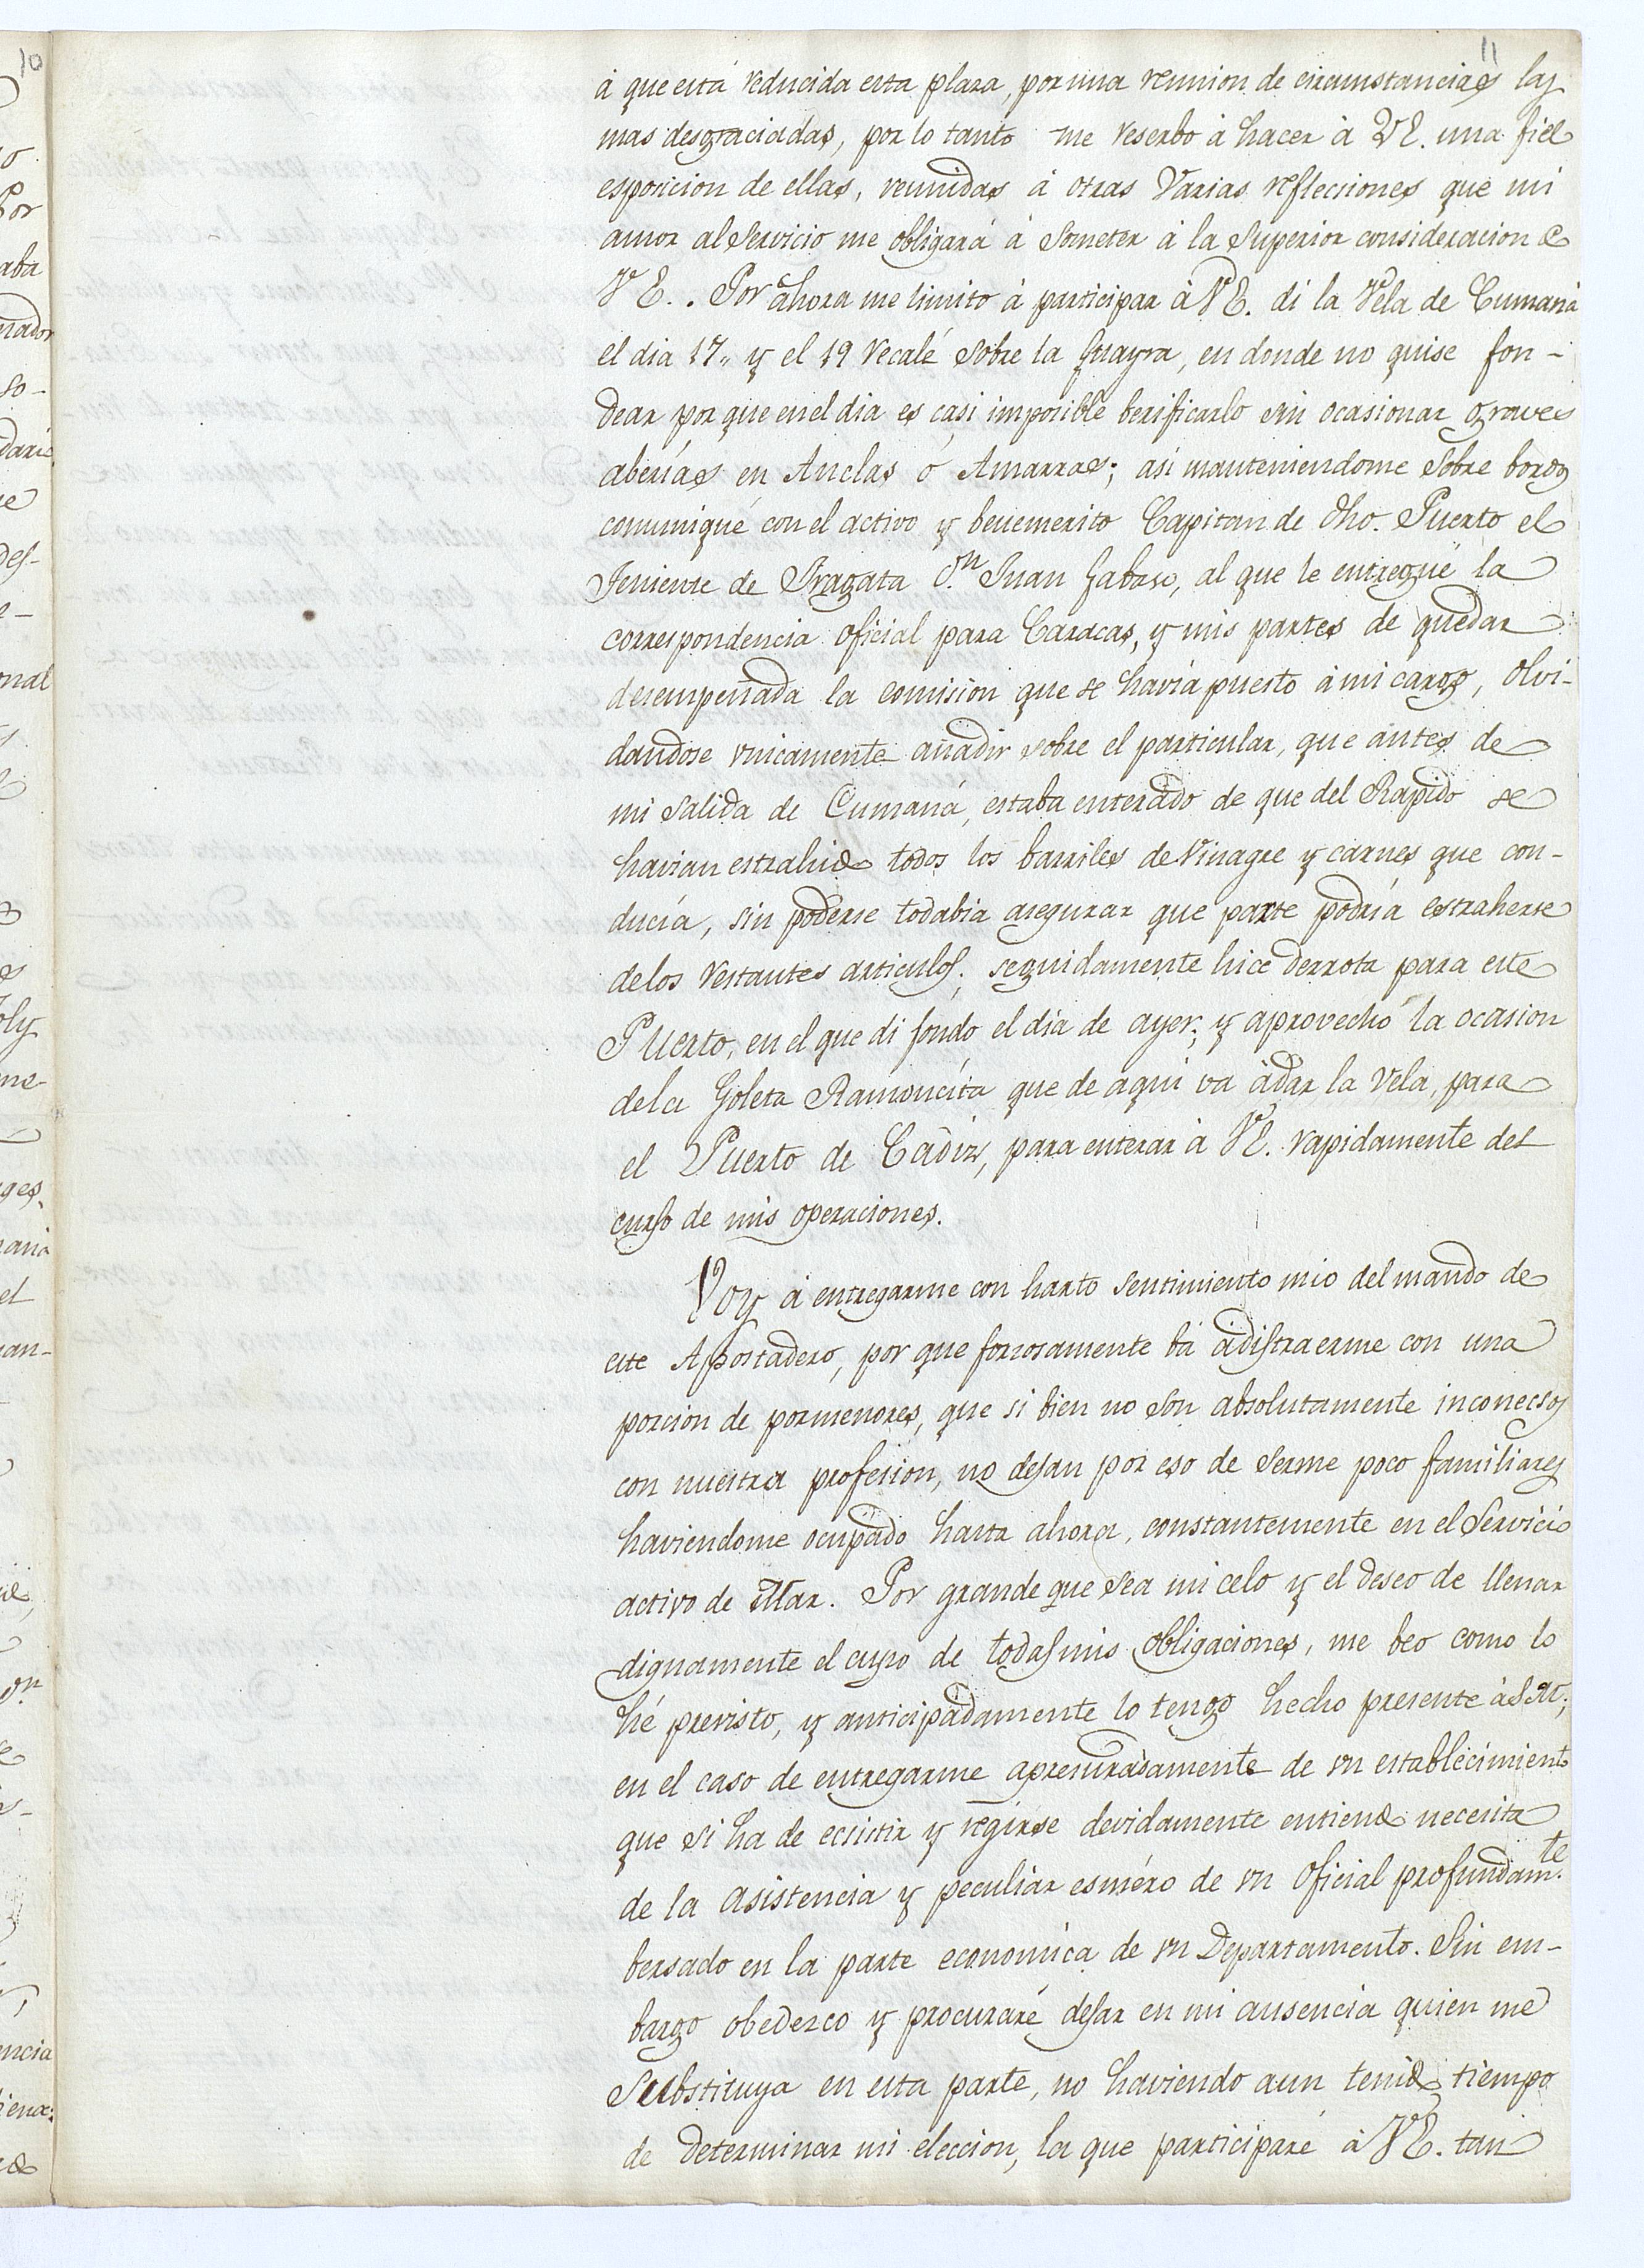 10
11
á que está reducida esta plaza, por una reunion de circunstancias las
mas desgraciadas, por lo tanto me reserbo á hacer á VE. una fiel
esposicion de ellas, reunidas á otras Varias reflecciones que mi
amor al Servicio me obligará á Someter á la Superior consideracion de
VE.. Por ahora me limito á participar á VE. di la Vela de Cumaná
el dia 17,, y el 19 recalé Sobre la Guayra, en donde no quise fon-
dear por que en el dia es casi imposible berificarlo sin ocasionar graves
aberías en Anclas ó Amarras; asi manteniendome Sobre bordos
comuniqué con el activo y benemerito Capitan de dho. Puerto el
Teniente de Fragata Dn. Juan Gabaso, al que le entregué la
correspondencia oficial para Caracas, y mis partes de quedar
desempeñada la comision que se havia puesto á mi cargo, olvi-
dandose vnicamente añadir sobre el particular, que antes de
mi Salida de Cumaná, estaba enterado de que del Rapido se
havian estrahido todos los barriles de Vinagre y carnes que con-
ducía, sin poderse todabia asegurar que parte podría estraherse
de los restantes articulos; seguidamente hice derrota para este
Puerto, en el que di fondo el dia de ayer; y aprovechó la ocasion
de la Goleta Ramoncita que de aqui va á dar la Vela, para
el Puerto de Cadiz, para enterar á VE. rapidamente del
curso de mis operaciones.
Voy á entregarme con harto Sentimiento mio del mando de
este Apostadero, por que forzosamente bá á distraerme con una
porcion de pormenores, que si bien no son absolutamente inconecsos
con nuestra profesion, no dejan por eso de Serme poco familiares
haviendome ocupado hasta ahora, constantemente en el Servicio
activo de Mar. Por grande que sea mi celo y el deseo de llenar
dignamente el cupo de todas mis obligaciones, me beo como lo
hé previsto, y anticipadamente lo tengo hecho presente á S.M.;
en el caso de entregarme apresuradamente de vn establecimiento
que si ha de ecsistir y regirse devidamente entiendo necesita
de la asistencia y peculiar esméro de vn Oficial profundamte.
bersado en la parte economica de vn Departamento. Sin em-
bargo obedezco y procuraré dejar en mi ausencia quien me
Substituya en esta parte, no haviendo aun tenido tiempo
de determinar mi eleccion, la que participaré á VE. tan